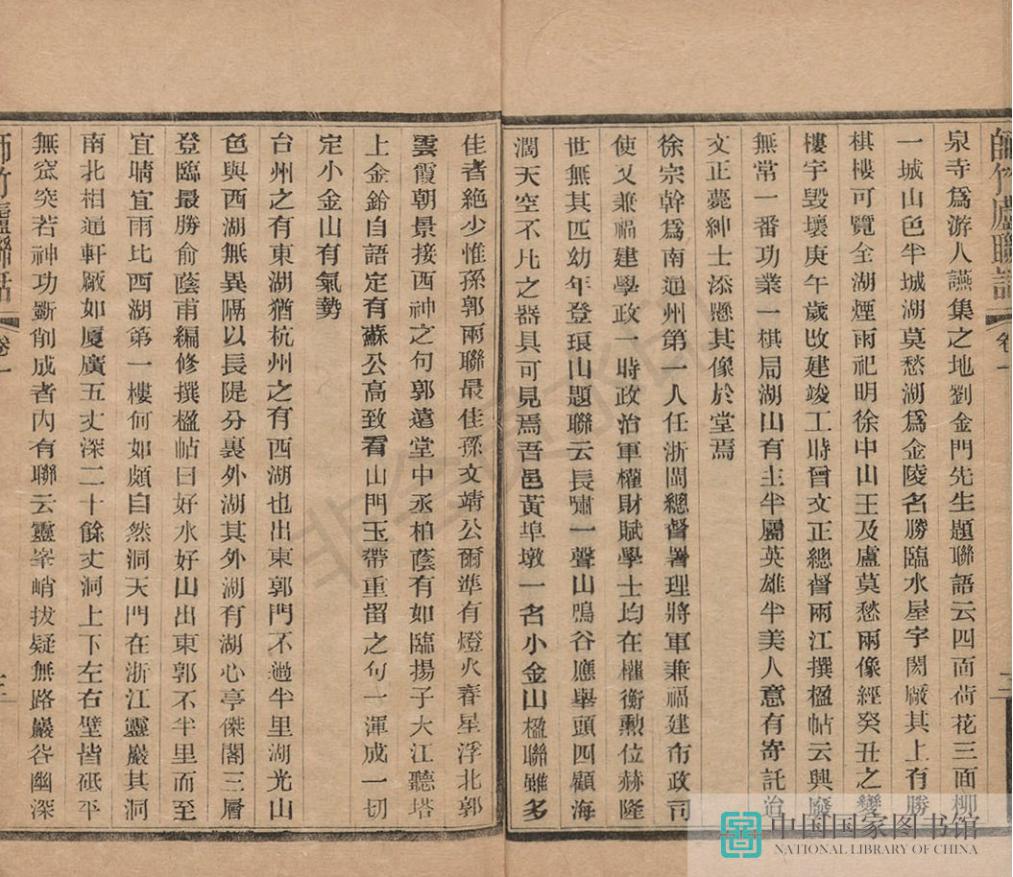 師竹廬聯話 卷一 三
泉寺爲游人讌集之地劉金門先生題聯語云四面荷花三面柳
一城山色半城湖莫愁湖爲金陵名勝臨水屋宇閎厰其上有勝
棋樓可覽全湖煙雨祀明徐中山王及盧莫愁兩像經癸丑之變
樓宇毀壞庚午歲改建竣工時曾文正總督兩江撰楹帖云興廢
無常一番功業一棋局湖山有主半屬英雄半美人意有寄託治
文正薨紳士添懸其像於堂焉
徐宗幹爲南通州第一人任浙閩總督署理將軍兼福建布政司
使又兼福建學政一時政治軍權財賦學士均在權衡勳位赫隆
世無其匹幼年登琅山題聯云長嘯一聲山鳴谷應舉頭四顧海
濶天空不凡之器具可見焉吾邑黃埠墩一名小金山楹聯雖多
佳者絶少惟孫郭兩聯最佳孫文靖公爾準有燈火春星浮北郭
雲霞朝景接西神之句郭遠堂中丞柏蔭有如臨揚子大江聽塔
上金鈴自語定有蘇公高致看山門玉帶重留之句一渾成一切
定小金山有氣勢
台州之有東湖猶杭州之有西湖也出東郭門不過半里湖光山
色與西湖無異隔以長隄分裏外湖其外湖有湖心亭傑閣三層
登臨最勝俞蔭甫編修撰楹帖曰好水好山出東郭不半里而至
宜晴宜雨比西湖第一樓何如頗自然洞天門在浙江靈巖其洞
南北相通軒厰如厦廣五丈深二十餘丈洞上下左右壁皆砥平
無窊突若神功斵削成者內有聯云靈峯峭拔疑無路巖谷幽深
師竹廬聯話 卷一 三
中国国家图书馆
NATIONAL LIBRARY OF CHINA